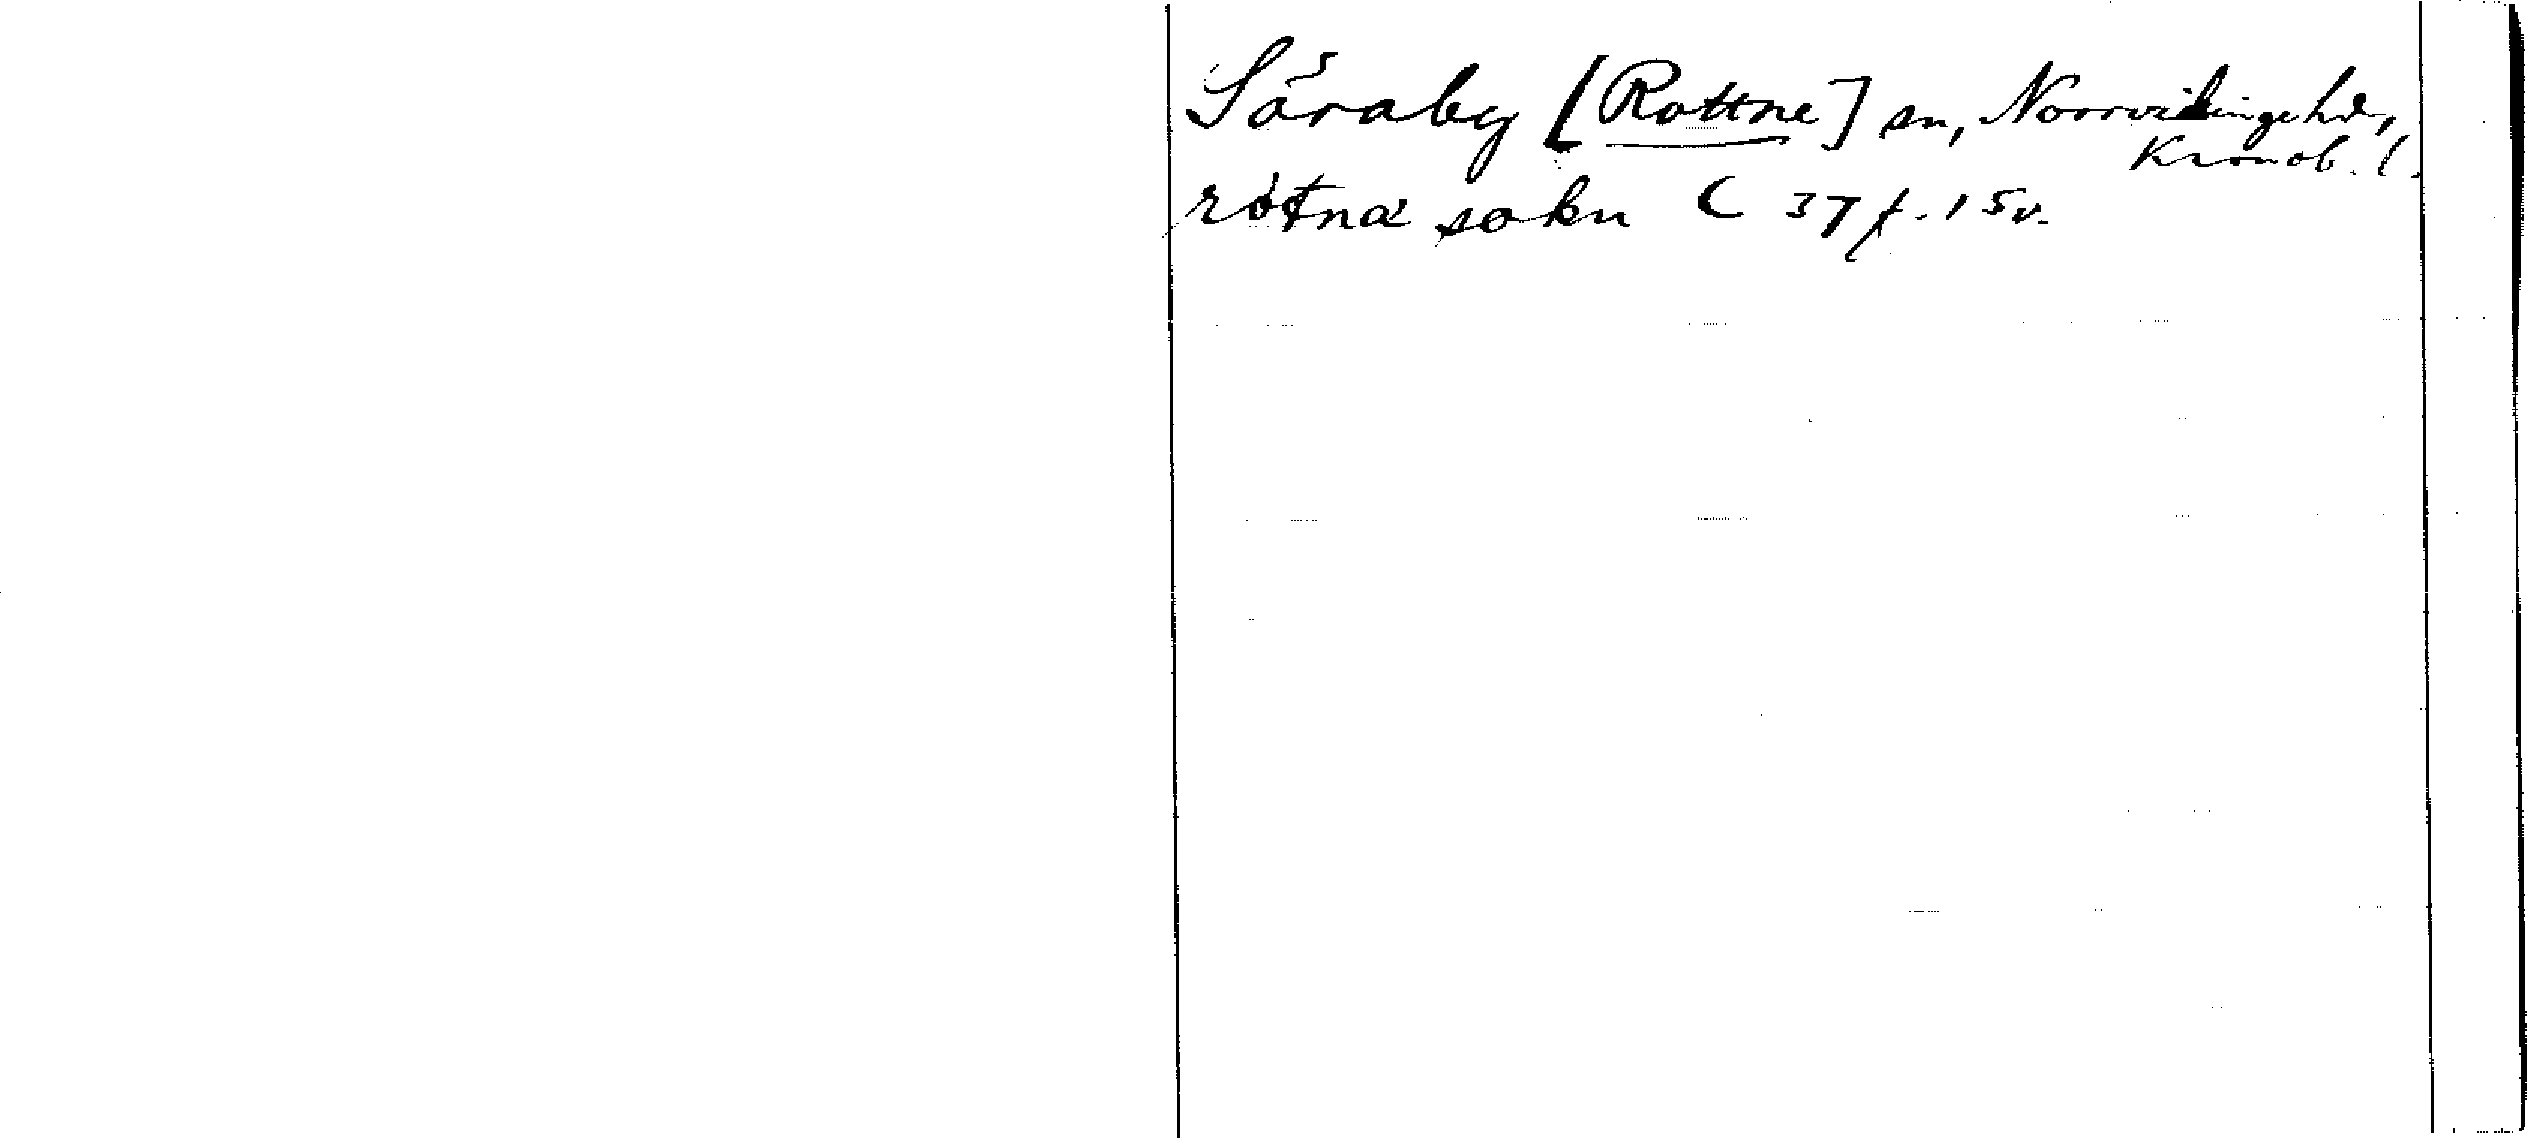 Söraby [Rottne] sn, Norrvidinge hd,
Kronob. l.
rotna sokn C 37 f. 15v.